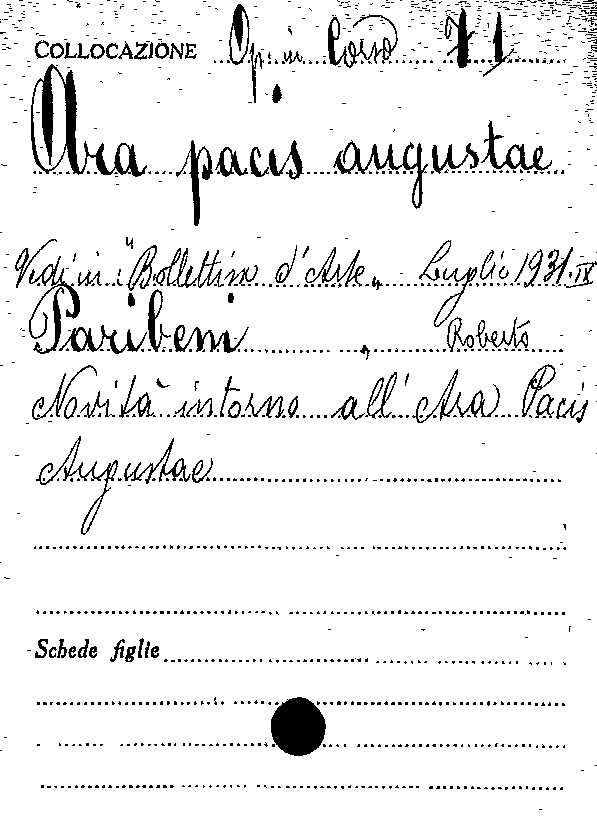 COLLOCAZIONE Op. in Corso 71
Ara pacis augustae
Vedi in: "Bollettino d'Arte„ Luglio 1931.IX
Paribeni, Roberto
Novità intorno all'Ara Pacis
Augustae
Schede figlie